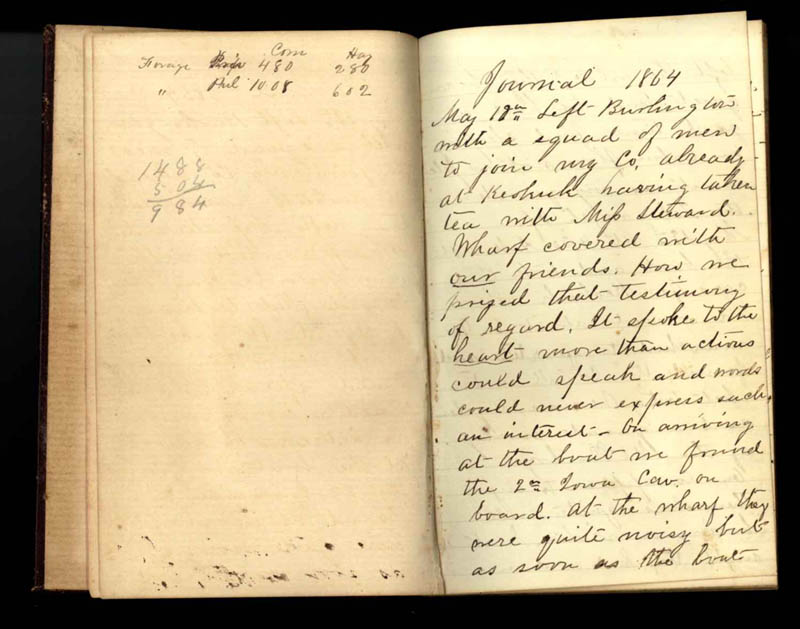 Corn Hay
Forage 480 280
" Phil 1008 602
1488
504
984
Journal 1864
May 12th Left Burlington
with a squad of men
to join my Co. already
at Keokuk having taken
tea with Miss Steward.
Wharf covered with
our friends. How we
prized that testimony
of regard. It spoke to the
heart more than actions
could speak and words
could never express such
an interest – On arriving
at the boat we found
the 2nd Iowa Cav. on
board. At the wharf they
were quite noisy but
as soon as the boat